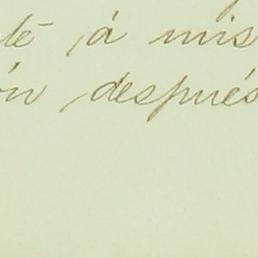 té á mis
ón después